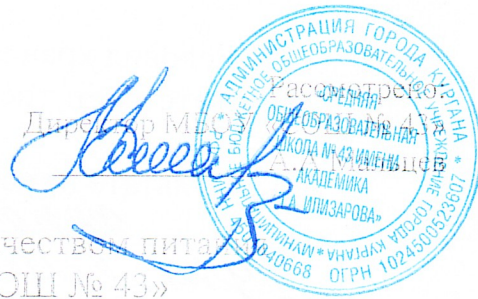 Рассмотрено:
Директор МБОУ «СОШ № 43»
А.А. Мальцев
чеством пита
ОШ № 43»
АДМИНИСТРАЦИЯ ГОРОДА КУРГАНА
БЮДЖЕТНОЕ ОБЩЕОБРАЗОВАТЕЛЬНОЕ УЧРЕЖДЕНИЕ ГОРОДА КУРГАНА * МУНИЦИПАЛЬНОЕ
ОГРН 1024500523607
040668
«СРЕДНЯЯ
ОБЩЕОБРАЗОВАТЕЛЬНАЯ
ШКОЛА № 43 ИМЕНИ
АКАДЕМИКА
Г.А. ИЛИЗАРОВА»